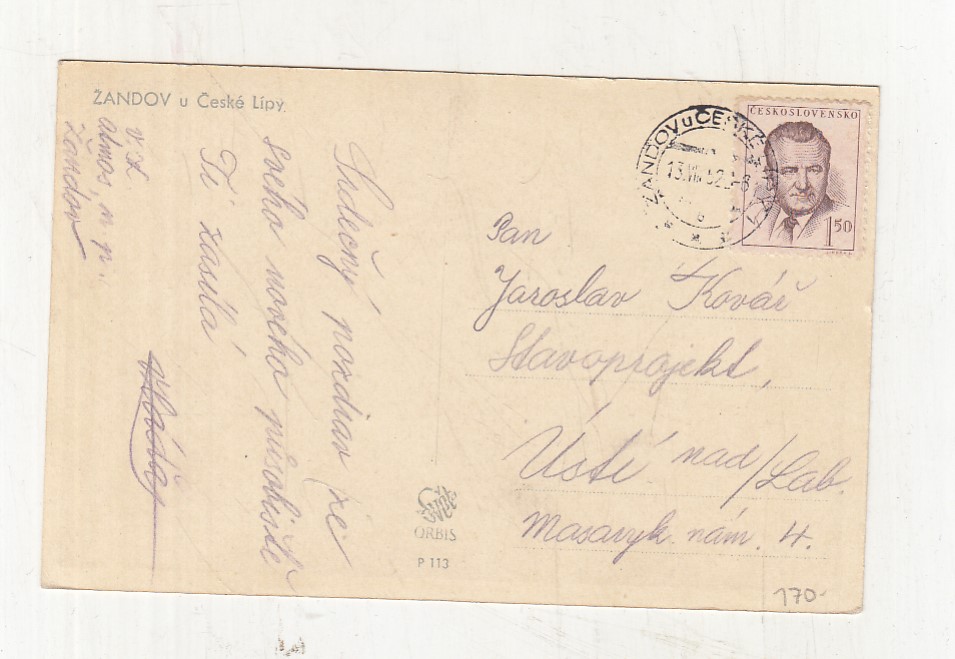 ŽANDOV u České Lípy
ČESKOSLOVENSKO
1 50
ŽANDOV u ČESKÉ
13.VIII.52
Srdečný pozdrav ze
svého nového působiště
Ti zasílá
V. H.
n. p.
Žandov
Pan
Jaroslav Kovář
Stavoprojekt,
Ústí nad/Lab.
Masaryk. nám. 4.
ORBIS
P 113
170-